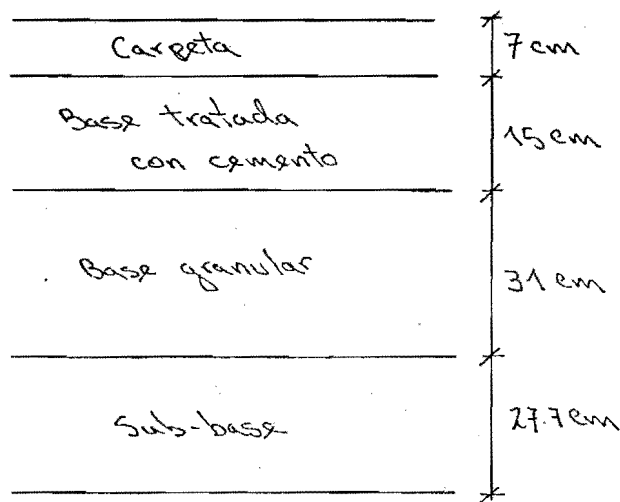 Carpeta
7 cm
Base tratada
con cemento
15 cm
Base granular
31 cm
Sub-base
27.7 cm